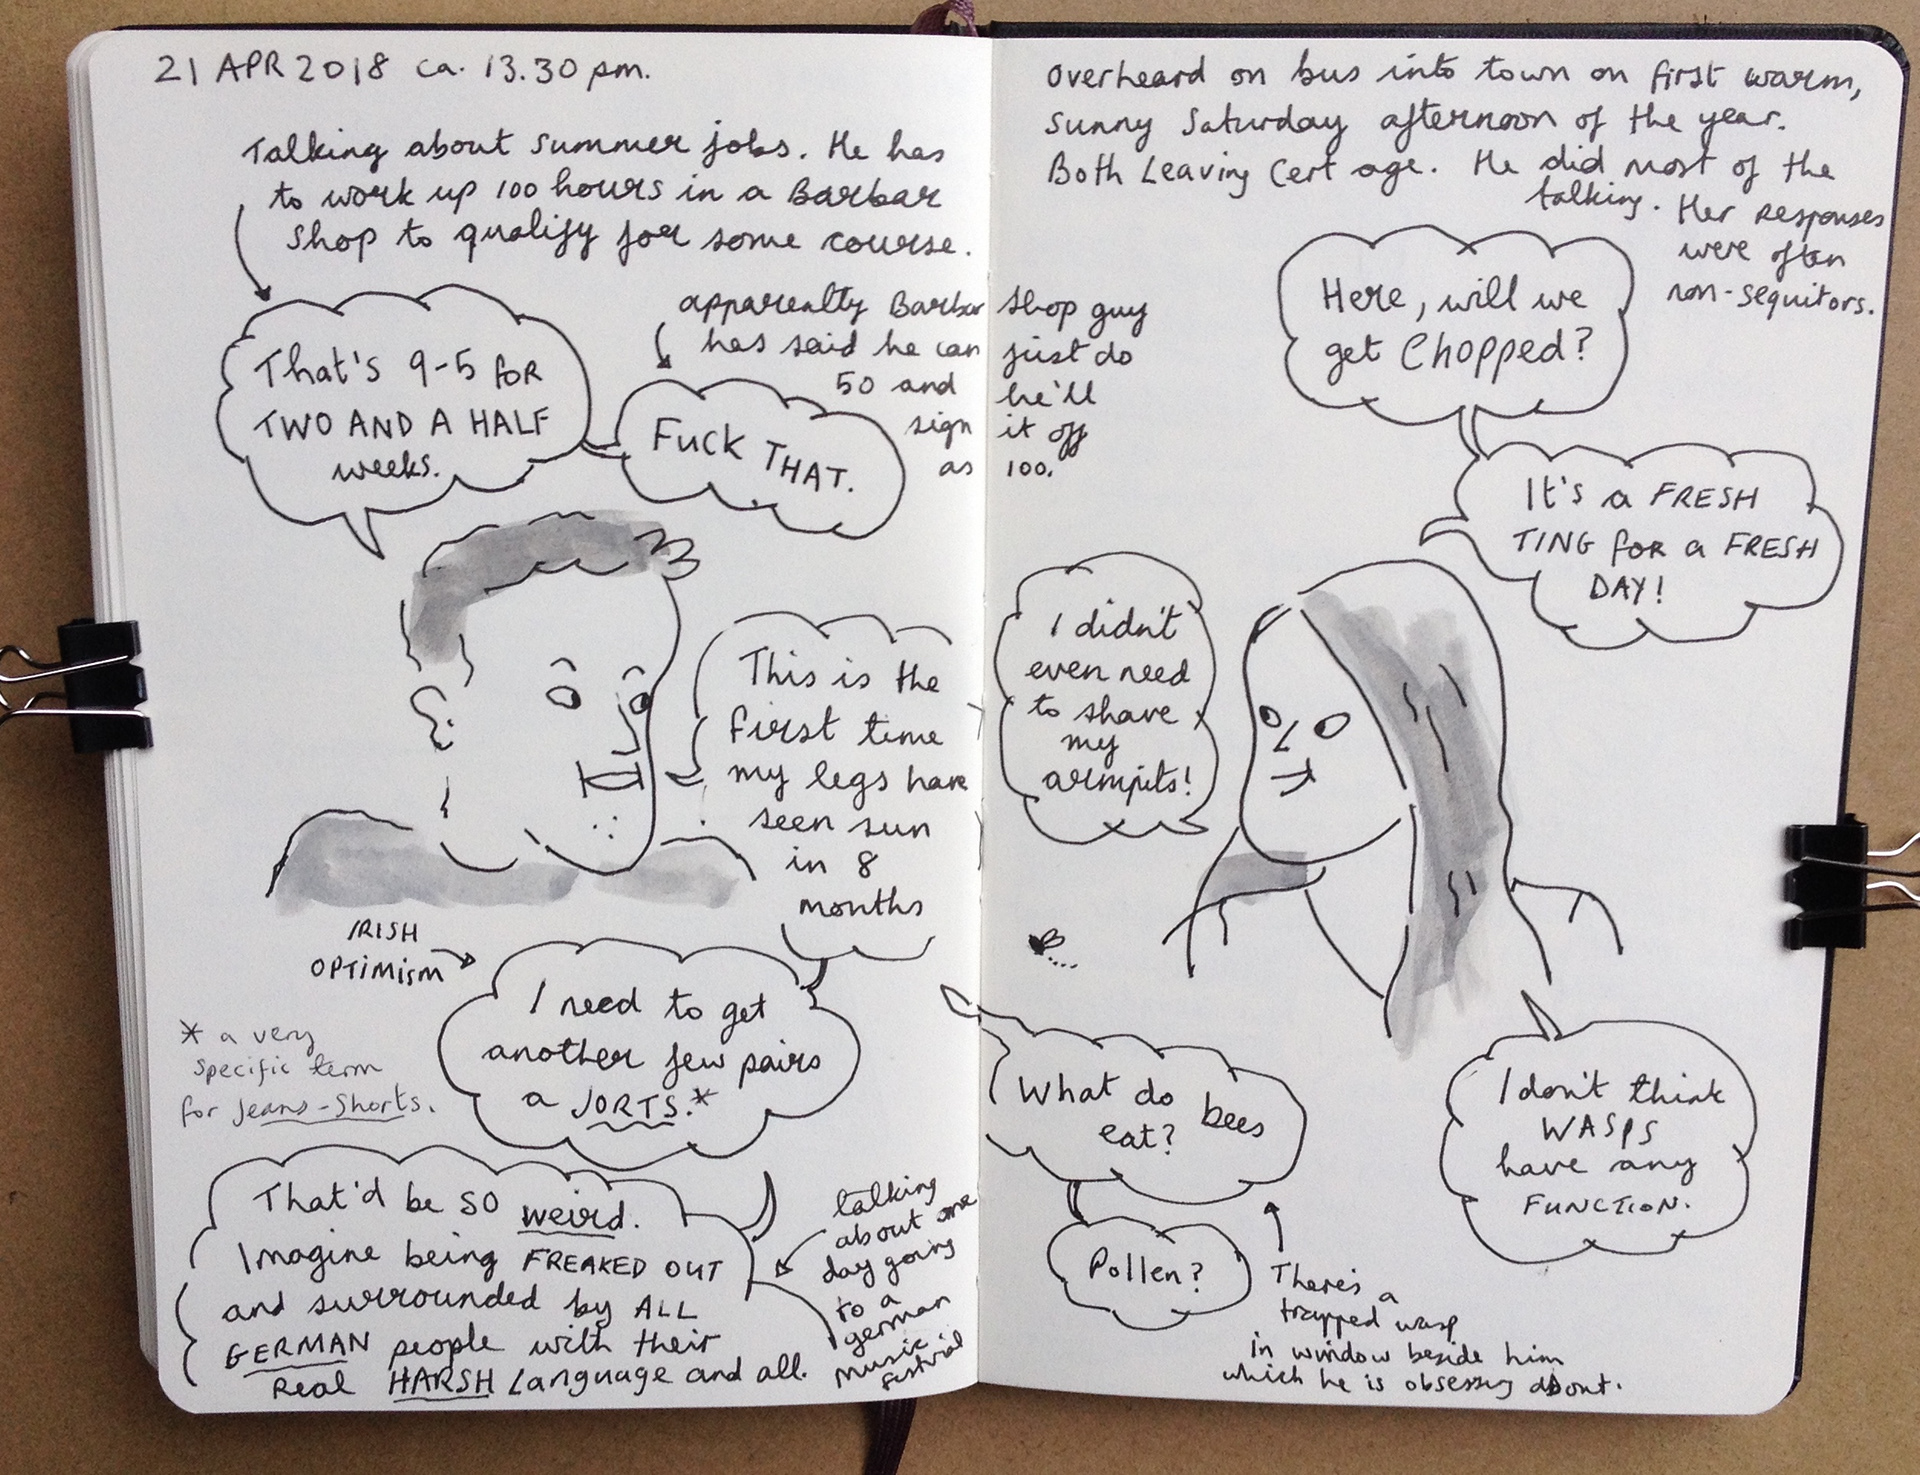 21 APR 2018 ca. 13.30 pm.
Talking about summer jobs. He has
to work up 100 hours in a Barbar
Shop to qualify for some course.
That's 9-5 for
TWO AND A HALF
weeks.
apparently Barbar shop guy
has said he can just do
50 and he'll
sign it off
as 100.
FUCK THAT.
This is the
first time
my legs have
seen sun
in 8
months
IRISH
OPTIMISM
I need to get
another few pairs
a JORTS.*
* a very
specific term
for Jeans-Shorts.
That'd be SO weird.
Imagine being FREAKED OUT
and surrounded by ALL
GERMAN people with their
Real HARSH Language and all.
talking
about one
day going
to a
german
music
festival
Overheard on bus into town on first warm,
sunny Saturday afternoon of the year.
Both Leaving Cert age. He did most of the
talking. Her responses
were often
non-sequitors.
Here, will we
get Chopped?
It's a FRESH
TING FOR a FRESH
DAY!
I didn't
even need
to shave
my
armpits!
What do bees
eat?
Pollen?
There's a
trapped wasp
in window beside him
which he is obsessing about.
I don't think
WASPS
have any
FUNCTION.